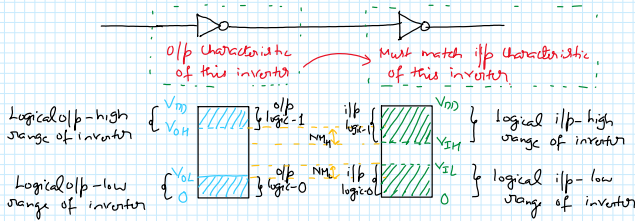 O/p Characteristic
of this inverter
Must match i/p Characteristic
of this inverter
Logical o/p - high
range of inverter
VDD
VOH
o/p
logic-1
NMH
i/p
logic-1
VDD
VIH
Logical i/p - high
range of inverter
Logical o/p - low
range of inverter
VOL
0
o/p
logic-0
NML
i/p
logic-0
VIL
0
logical i/p - low
range of inverter